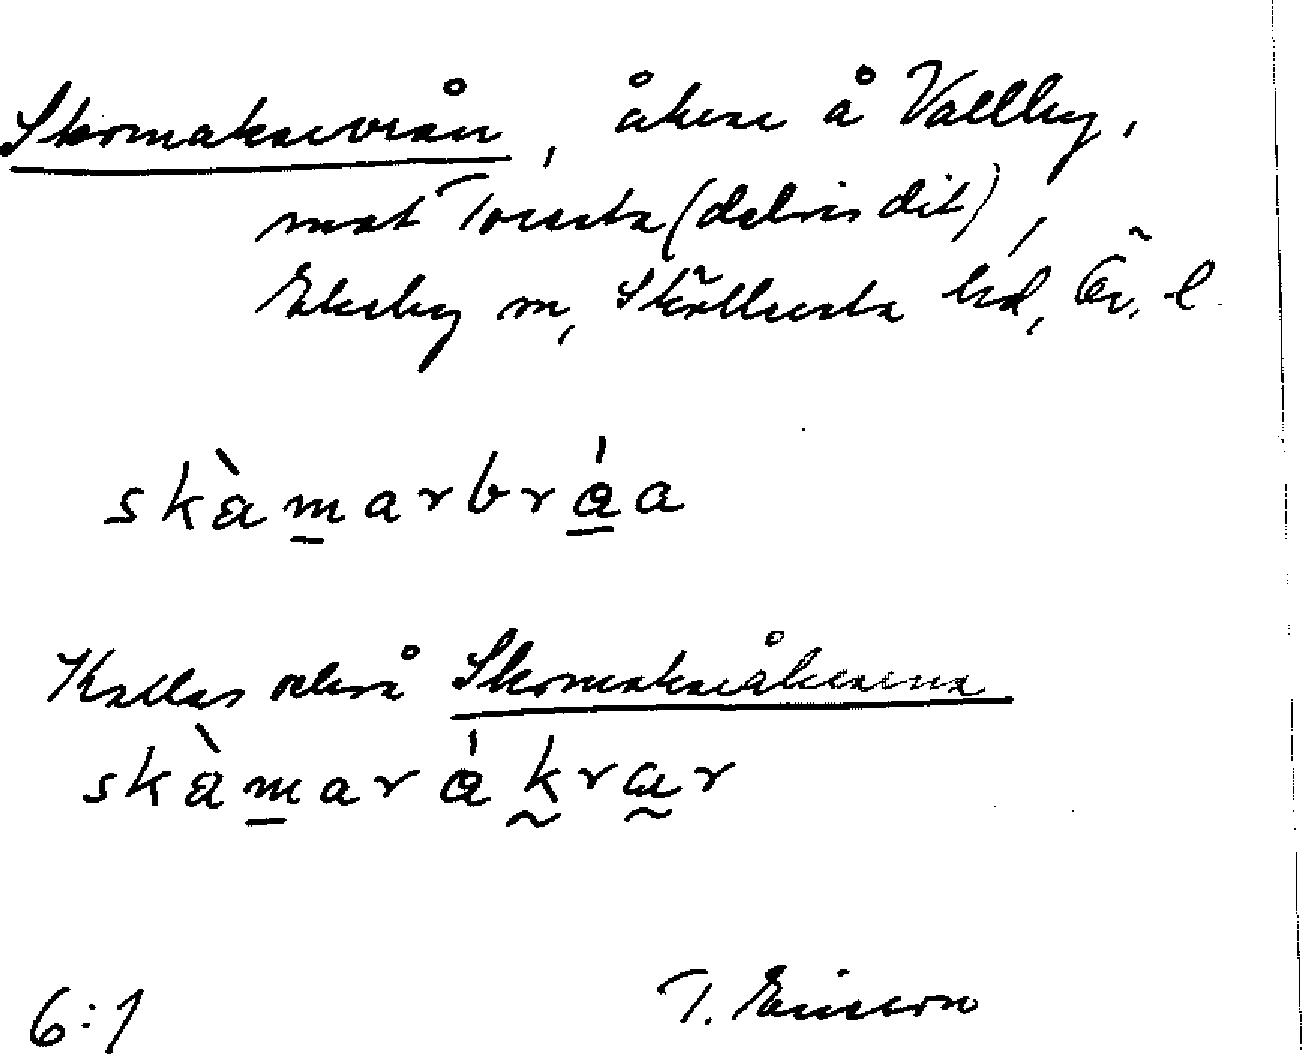 Skomakarvrån, åkrar å Vallby,
mot Toresta (delvis dit),
Ekeby m, Sköllersta hd, Ör. l
skàmarbráa
Kallas också Skomakaråkrarna
skàmarákrar
6:1 T. Ericsson